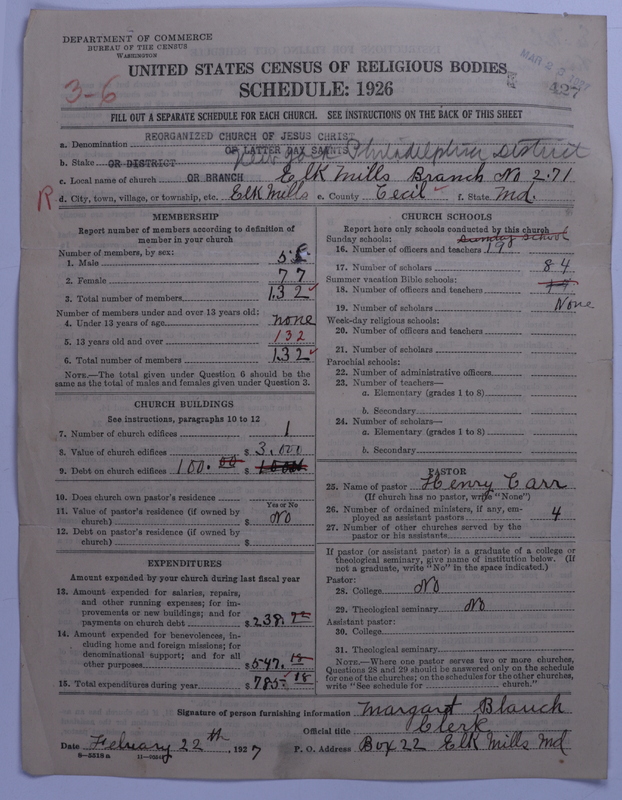 DEPARTMENT OF COMMERCE
BUREAU OF THE CENSUS
WASHINGTON
UNITED STATES CENSUS OF RELIGIOUS BODIES
SCHEDULE: 1926
3-6
427
FILL OUT A SEPARATE SCHEDULE FOR EACH CHURCH. SEE INSTRUCTIONS ON THE BACK OF THIS SHEET
REORGANIZED CHURCH OF JESUS CHRIST
a. Denomination OF LATTER DAY SAINTS
b. Stake OR DISTRICT New York Philadelphia District
c. Local name of church OR BRANCH Elk Mills Branch No 271
R d. City, town, village, or township, etc. Elk Mills e. County Cecil f. State Md.
MEMBERSHIP
Report number of members according to definition of
member in your church
Number of members, by sex:
1. Male
2. Female 77
3. Total number of members 132
Number of members under and over 13 years old:
4. Under 13 years of age none
5. 13 years old and over 132
6. Total number of members 132
NOTE.—The total given under Question 6 should be the
same as the total of males and females given under Question 3.
CHURCH BUILDINGS
See instructions, paragraphs 10 to 12
7. Number of church edifices 1
8. Value of church edifices $ 3,000
9. Debt on church edifices 100.00 $
10. Does church own pastor's residence
Yes or No
11. Value of pastor's residence (if owned by
church) $ No
12. Debt on pastor's residence (if owned by
church) $
EXPENDITURES
Amount expended by your church during last fiscal year
13. Amount expended for salaries, repairs,
and other running expenses; for im-
provements or new buildings; and for
payments on church debt $ 238.
14. Amount expended for benevolences, in-
cluding home and foreign missions; for
denominational support; and for all
other purposes $ 547.
15. Total expenditures during year $ 785. 18
CHURCH SCHOOLS
Report here only schools conducted by this church
Sunday schools: Sunday School
16. Number of officers and teachers 19
17. Number of scholars 84
Summer vacation Bible schools:
18. Number of officers and teachers
19. Number of scholars None
Week-day religious schools:
20. Number of officers and teachers
21. Number of scholars
Parochial schools:
22. Number of administrative officers
23. Number of teachers—
a. Elementary (grades 1 to 8)
b. Secondary
24. Number of scholars—
a. Elementary (grades 1 to 8)
b. Secondary
PASTOR
25. Name of pastor Henry Carr
(If church has no pastor, write "None")
26. Number of ordained ministers, if any, em-
ployed as assistant pastors 4
27. Number of other churches served by the
pastor or his assistants
If pastor (or assistant pastor) is a graduate of a college or
theological seminary, give name of institution below. (If
not a graduate, write "No" in the space indicated.)
Pastor:
28. College No
29. Theological seminary No
Assistant pastor:
30. College
31. Theological seminary
NOTE.—Where one pastor serves two or more churches,
Questions 28 and 29 should be answered only on the schedule
for one of the churches; on the schedules for the other churches,
write "See schedule for church."
Signature of person furnishing information Margart Blauch
Official title Clerk
Date Febuary 22th, 1927 P. O. Address Box 22 Elk Mills Md
8-5518 a